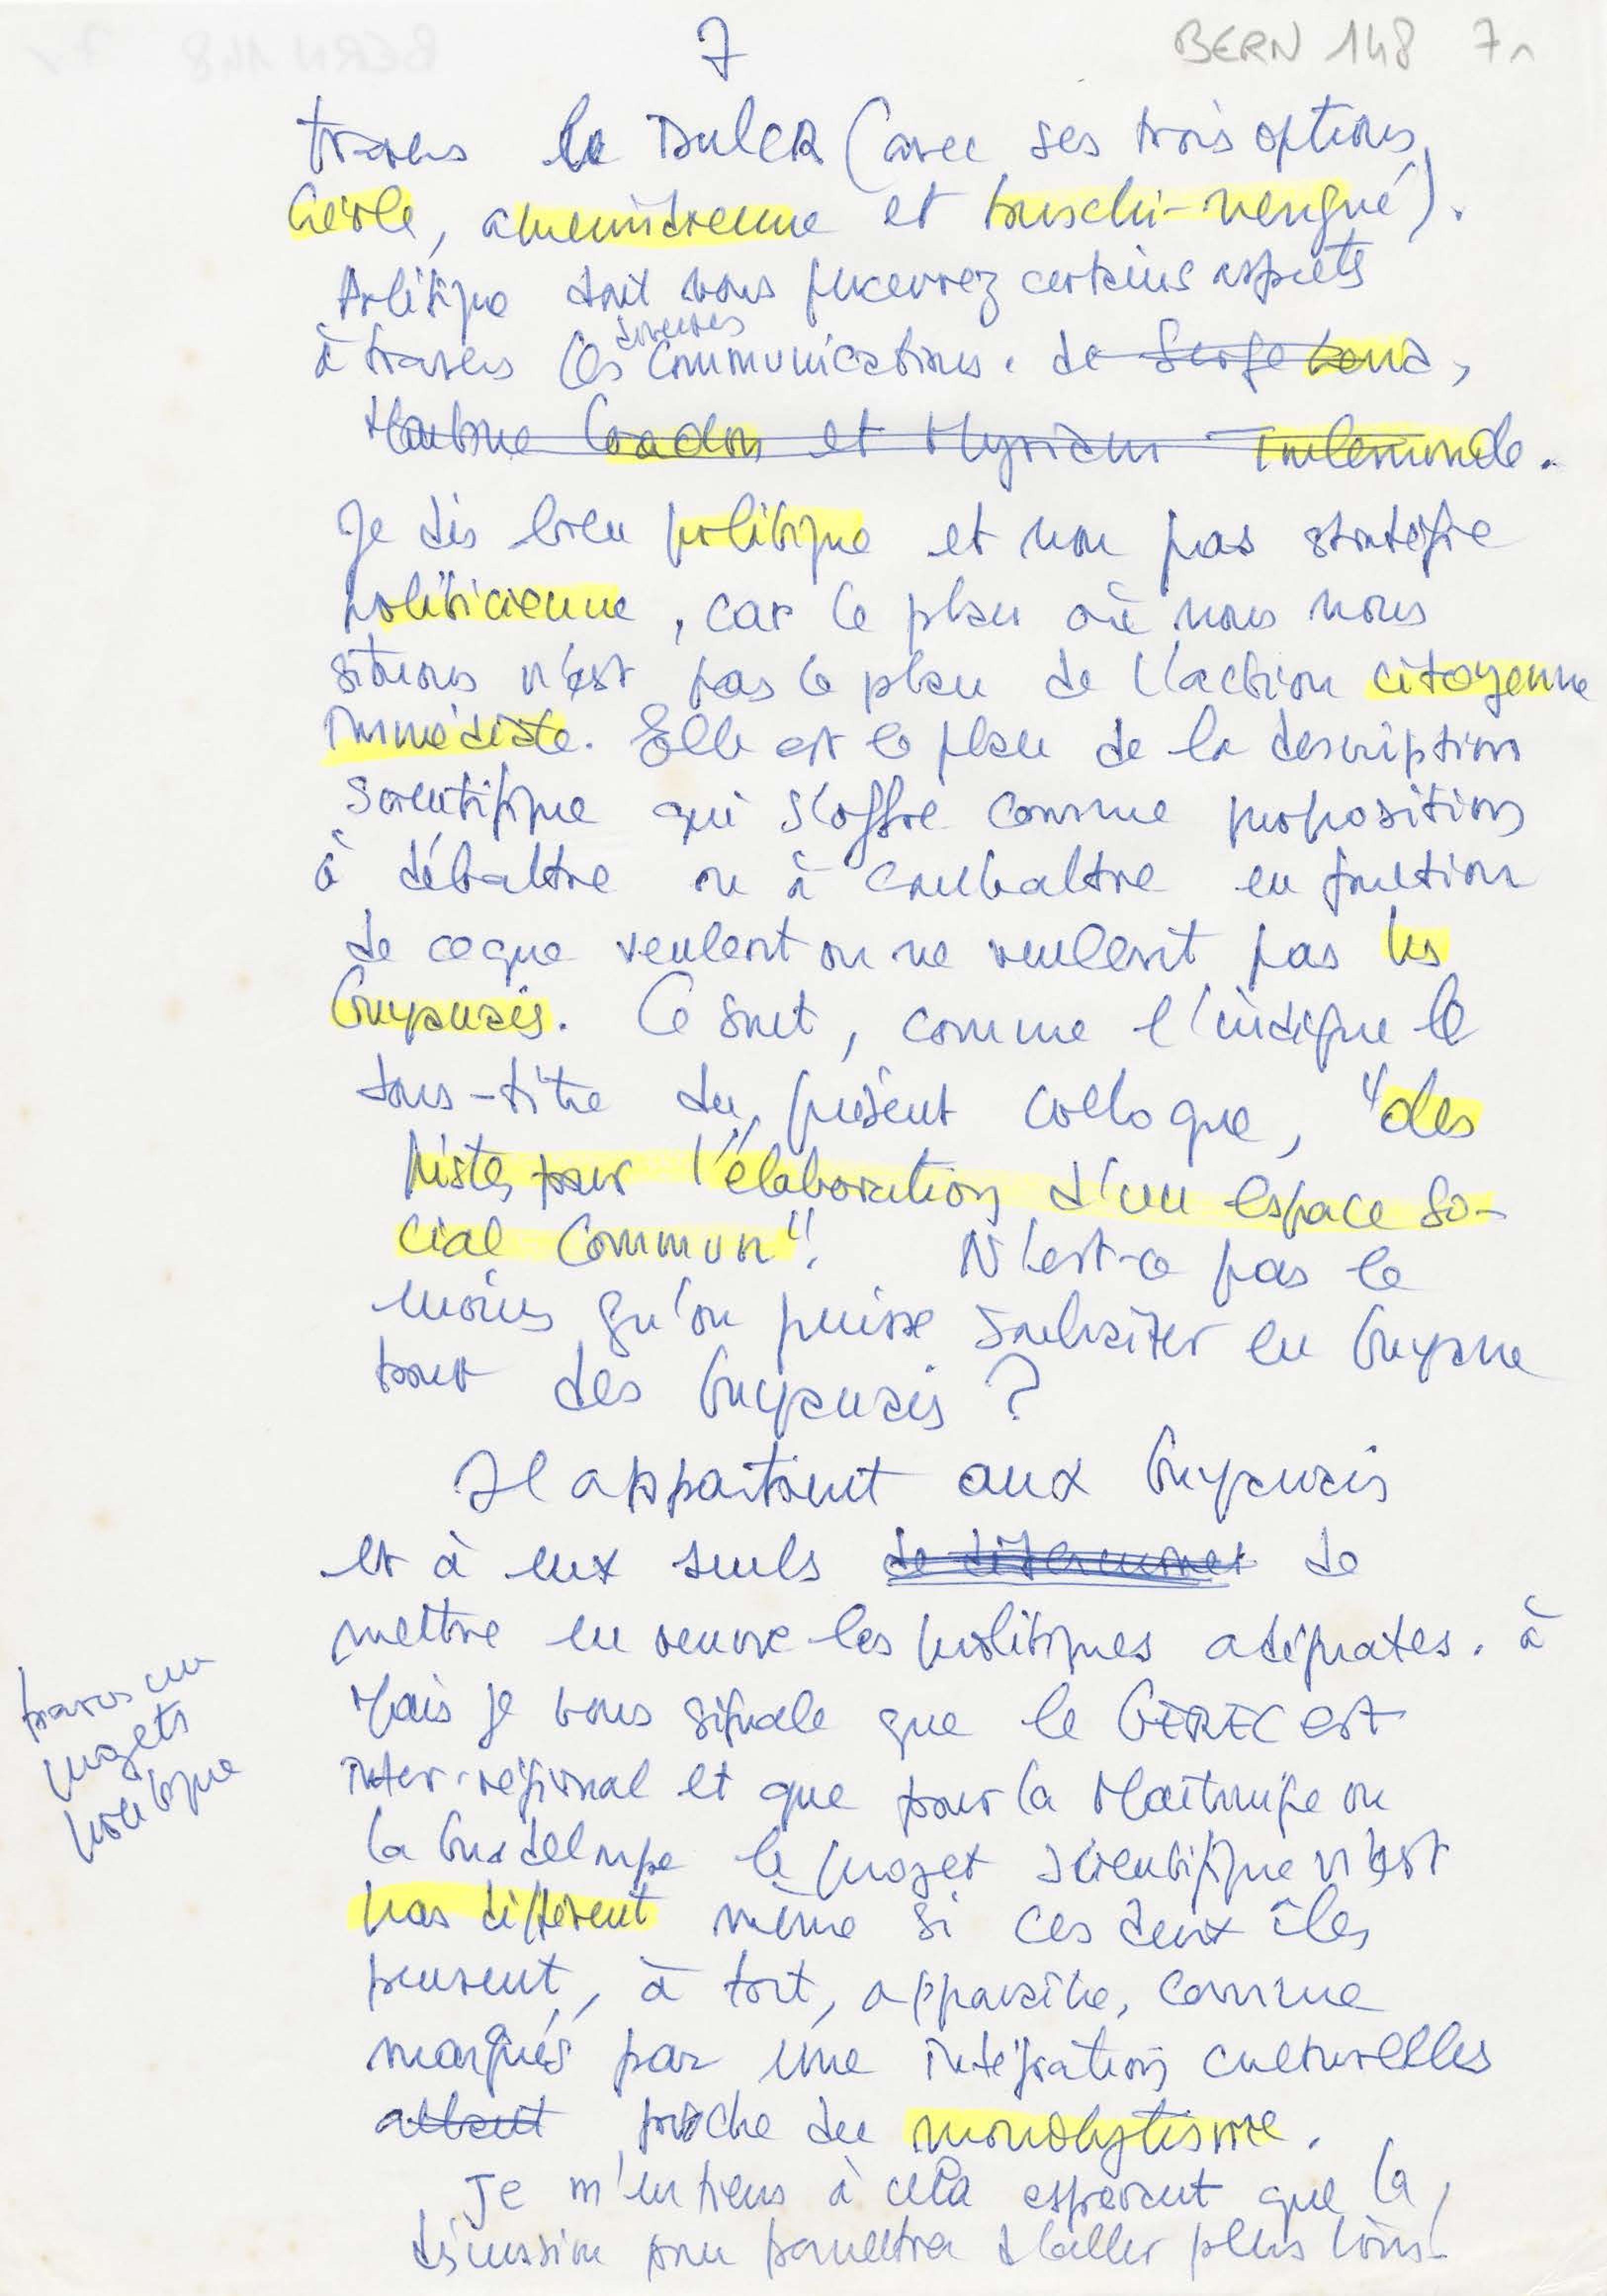 7
BERN 148 7r
travers le DULCR (avec ses trois options
créole, amérindienne et buschi-nengué).
Politique dont vous percevrez certains aspects
à travers les diverses communications. de Serge Lena,
Martine Coadou et Myriam Toulemonde.
Je dis bien politique et non pas stratégie
politicienne, car le plan où nous nous
situons n'est pas le plan de l'action citoyenne
immédiate. Elle est le plan de la description
scientifique qui s'offre comme proposition
à débattre ou à combattre en fonction
de ce que veulent ou ne veulent pas les
Guyanais. Ce sont, comme l'indique le
sous-titre du présent colloque, "des
pistes pour l'élaboration d'un espace so-
cial commun". N'est-ce pas le
moins qu'on puisse souhaiter en Guyane
pour des Guyanais ?
Il appartient aux Guyanais
et à eux seuls de déterminer de
mettre en oeuvre les politiques adéquates. à
travers un
projets
politique
Mais je vous signale que le GEREC est
inter-régional et que pour la Martinique ou
la Guadeloupe le projet scientifique n'est
pas différent même si ces deux îles
peuvent, à tort, apparaître, comme
marqués par une intégration culturelles
allant proche du monolytisme.
Je m'en tiens à cela espérant que la
discussion pour permettra d'aller plus loin.